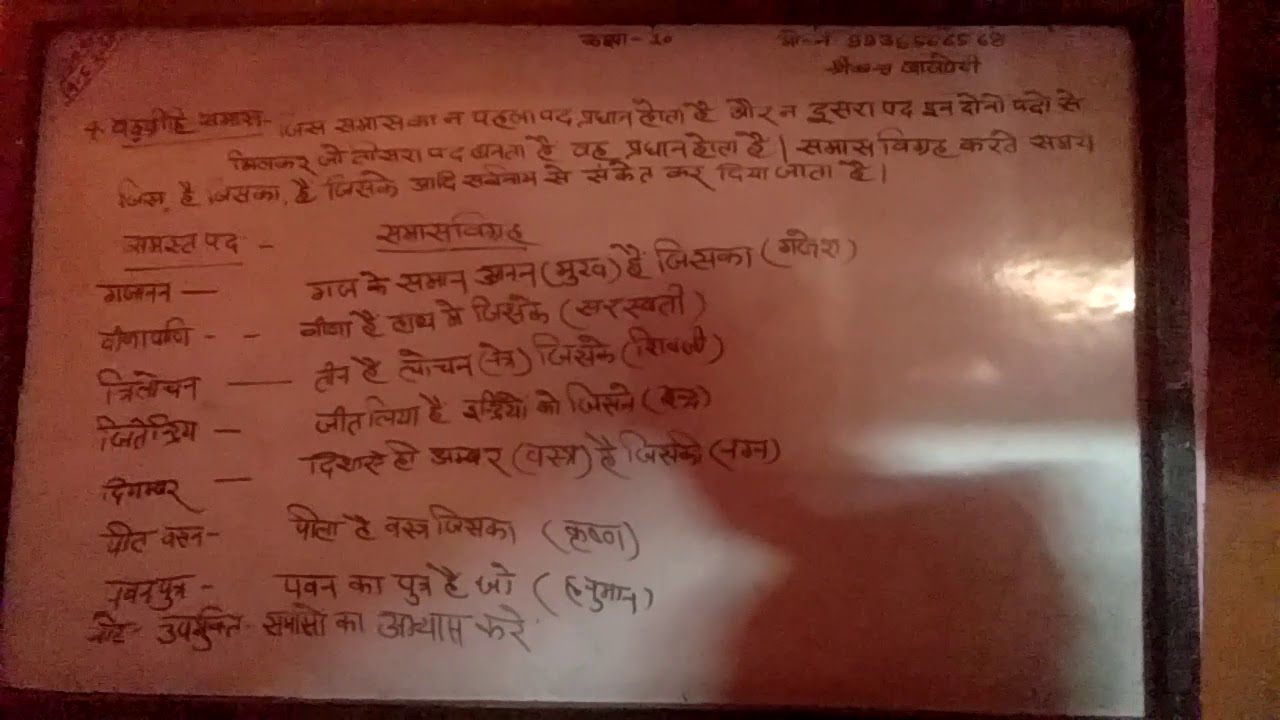 कक्षा- 10 मो०न 9936566568
वाजपेयी
* बहुव्रीहि समास- जिस समास का न पहला पद प्रधान होता है और न दूसरा पद इन दोनो पदो से
मिलकर जो तीसरा पद बनता है वह प्रधान होता है | समास विग्रह करते समय
जिस, है जिसका, है जिसके आदि सर्वनाम से संकेत कर दिया जाता है |
समस्त पद - समास विग्रह
गजानन — गज के समान आनन (मुख) है जिसका (गणेश)
वीणापाणि - - वीणा है हाथ मे जिसके (सरस्वती)
त्रिलोचन — तीन है लोचन (नेत्र) जिसके (शिवजी)
जितेन्द्रिय — जीत लिया है इन्द्रियो को जिसने
दिगम्बर — दिशाऐ ही अम्बर (वस्त्र) है जिसके (नग्न)
पीत वसन- पीला है वस्त्र जिसका (कृष्ण)
पवनपुत्र - पवन का पुत्र है जो (हनुमान)
नोट- उपर्युक्त समासो का अभ्यास करे